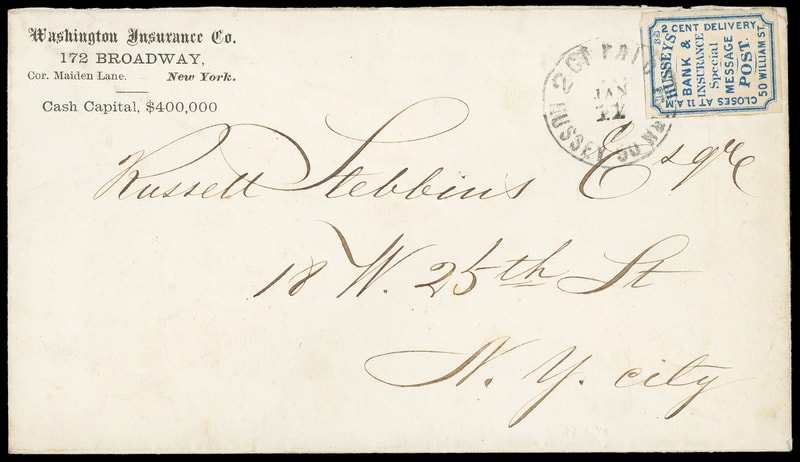 Washington Insurance Co.
172 BROADWAY,
Cor. Maiden Lane. New York.
Cash Capital, $400,000
2 CT PAID
JAN
HUSSEY 50 WM
2 CENT DELIVERY
HUSSEY'S
BANK &
INSURANCE
Special
MESSAGE
POST.
50 WILLIAM ST.
CLOSES AT 11 A.M.
Russell Stebbins Esqre
18 W. 25th St
N. Y. city